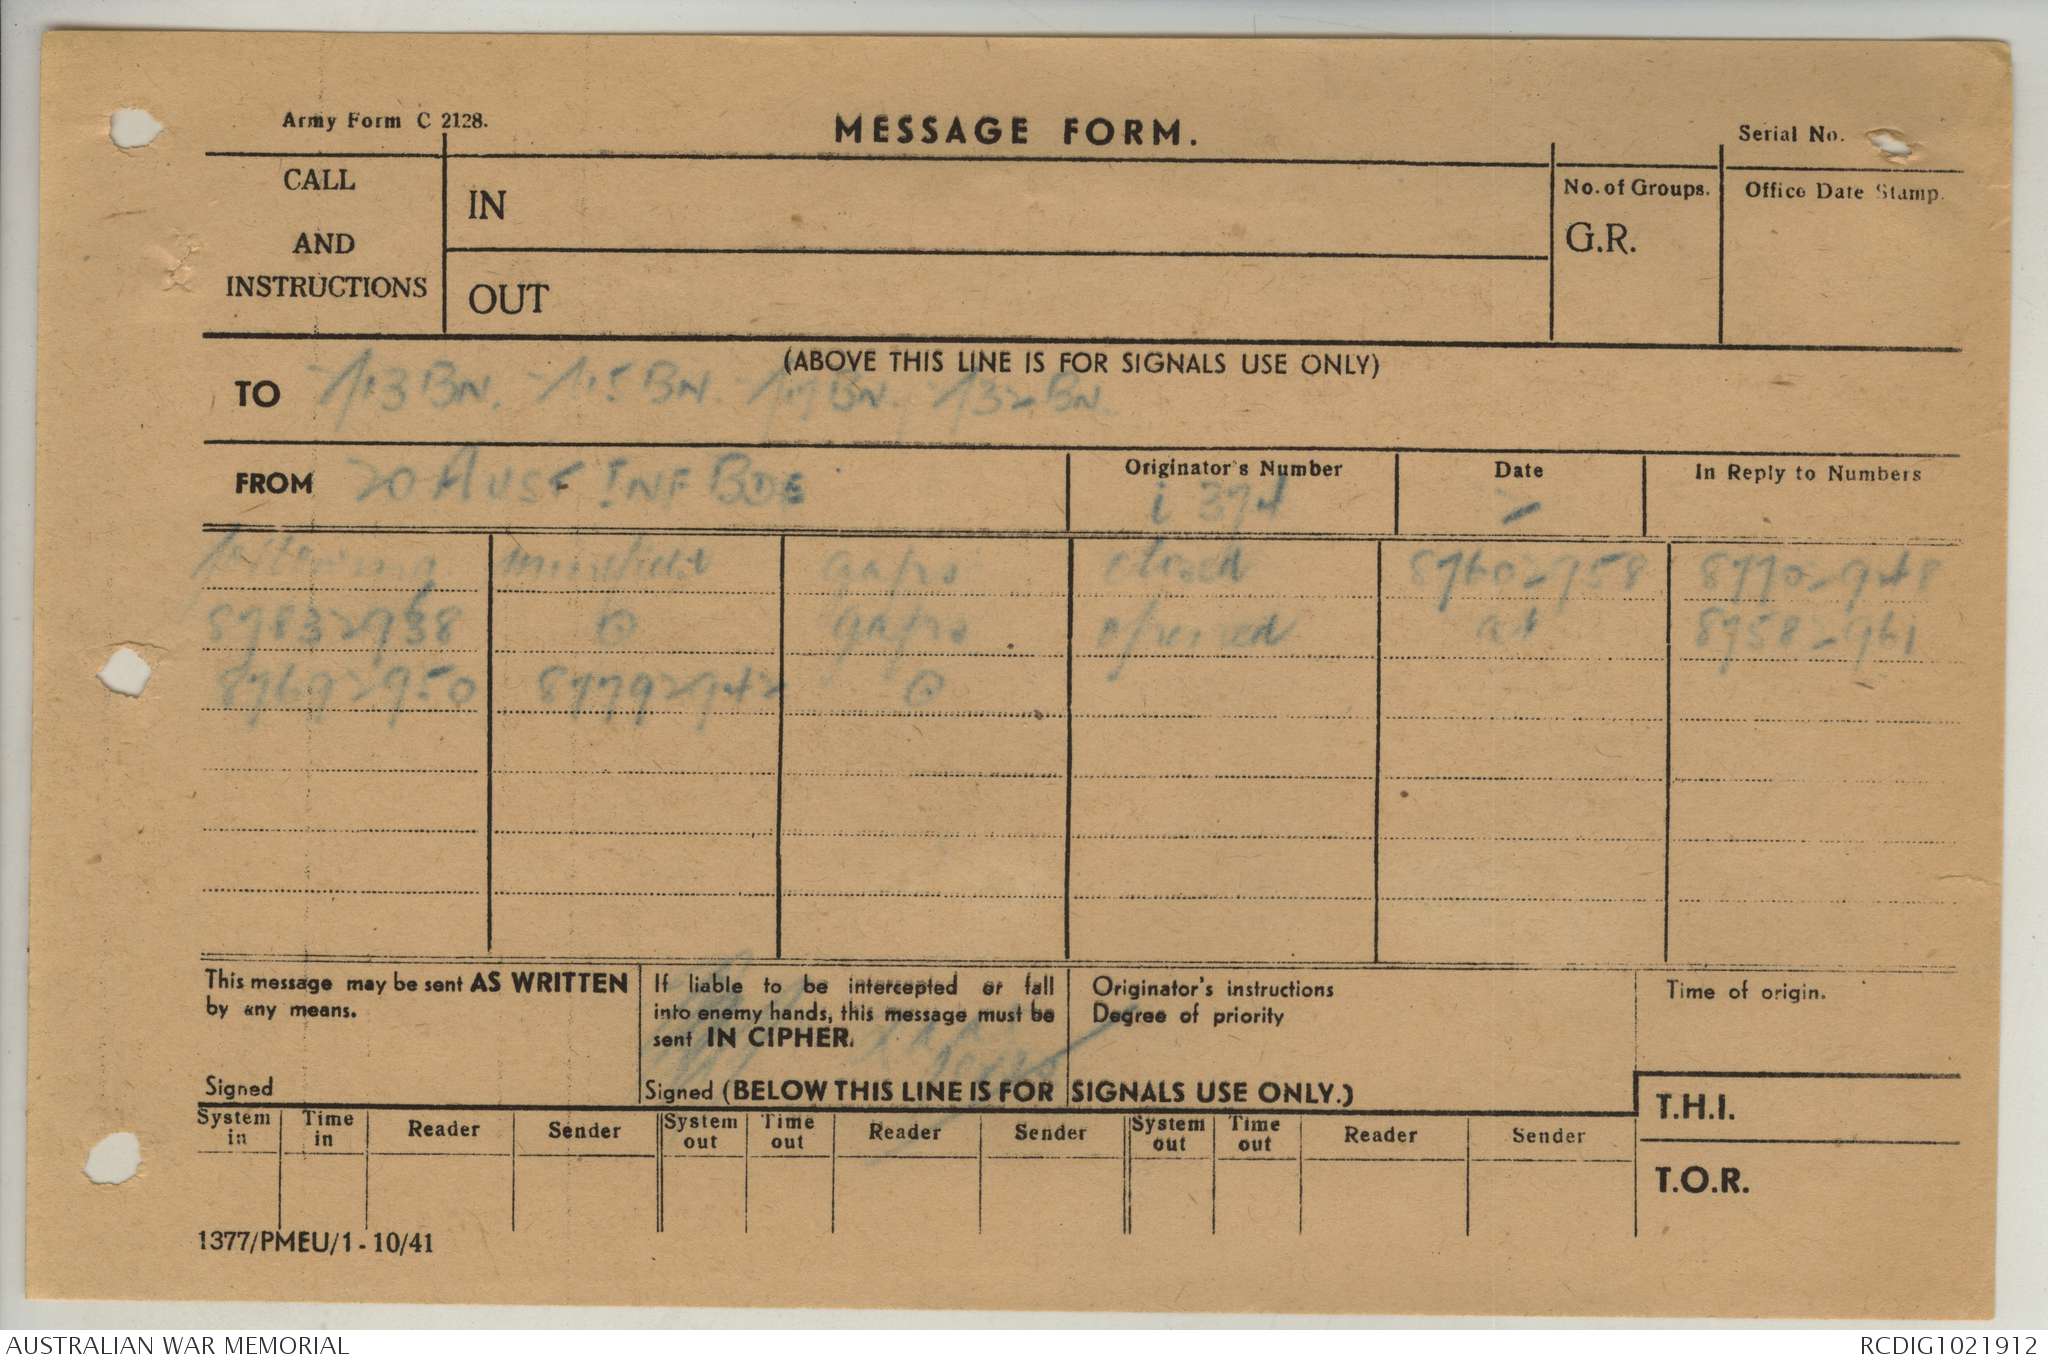 Army Form C 2128.
MESSAGE FORM.
Serial No.
CALL
AND
INSTRUCTIONS
IN
OUT
No. of Groups.
G.R.
Office Date Stamp.
(ABOVE THIS LINE IS FOR SIGNALS USE ONLY)
TO 2/13 BN. 2/15 BN. 2/17 BN. 2/32 BN.
FROM 20 AUST INF BDE
Originator's Number
i 374
Date
In Reply to Numbers
following minefield gaps closed 87602958 87702948
87832938 gaps opened at 87582961
87692950 87792942
This message may be sent AS WRITTEN
by any means.
Signed
If liable to be intercepted or fall
into enemy hands, this message must be
sent IN CIPHER.
Signed (BELOW THIS LINE IS FOR SIGNALS USE ONLY.)
Originator's instructions
Degree of priority
Time of origin.
T.H.I.
T.O.R.
System in Time in Reader Sender System out Time out Reader Sender System out Time out Reader Sender
1377/PMEU/1 - 10/41
AUSTRALIAN WAR MEMORIAL
RCDIG1021912